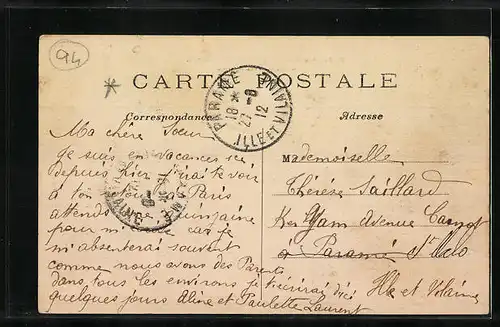 94
CARTE POSTALE
Correspondance
Adresse
PARAMÉ
18 * 27 -8 12
ILLE ET VILAINE
Ma chère Sœur
Je suis en vacances
depuis hier j'irai te voir
à ton à Paris
attends quinzaine
pour m' car je
m'absenterai souvent
comme nous avons des Parents
dans tous les environs je t'écrirai d'ici
quelques jours Aline et Paulette Laurent
Mademoiselle
Thérèse Saillard
Ker Avenue Carnot
à Paramé St Malo
Ille et Vilaine